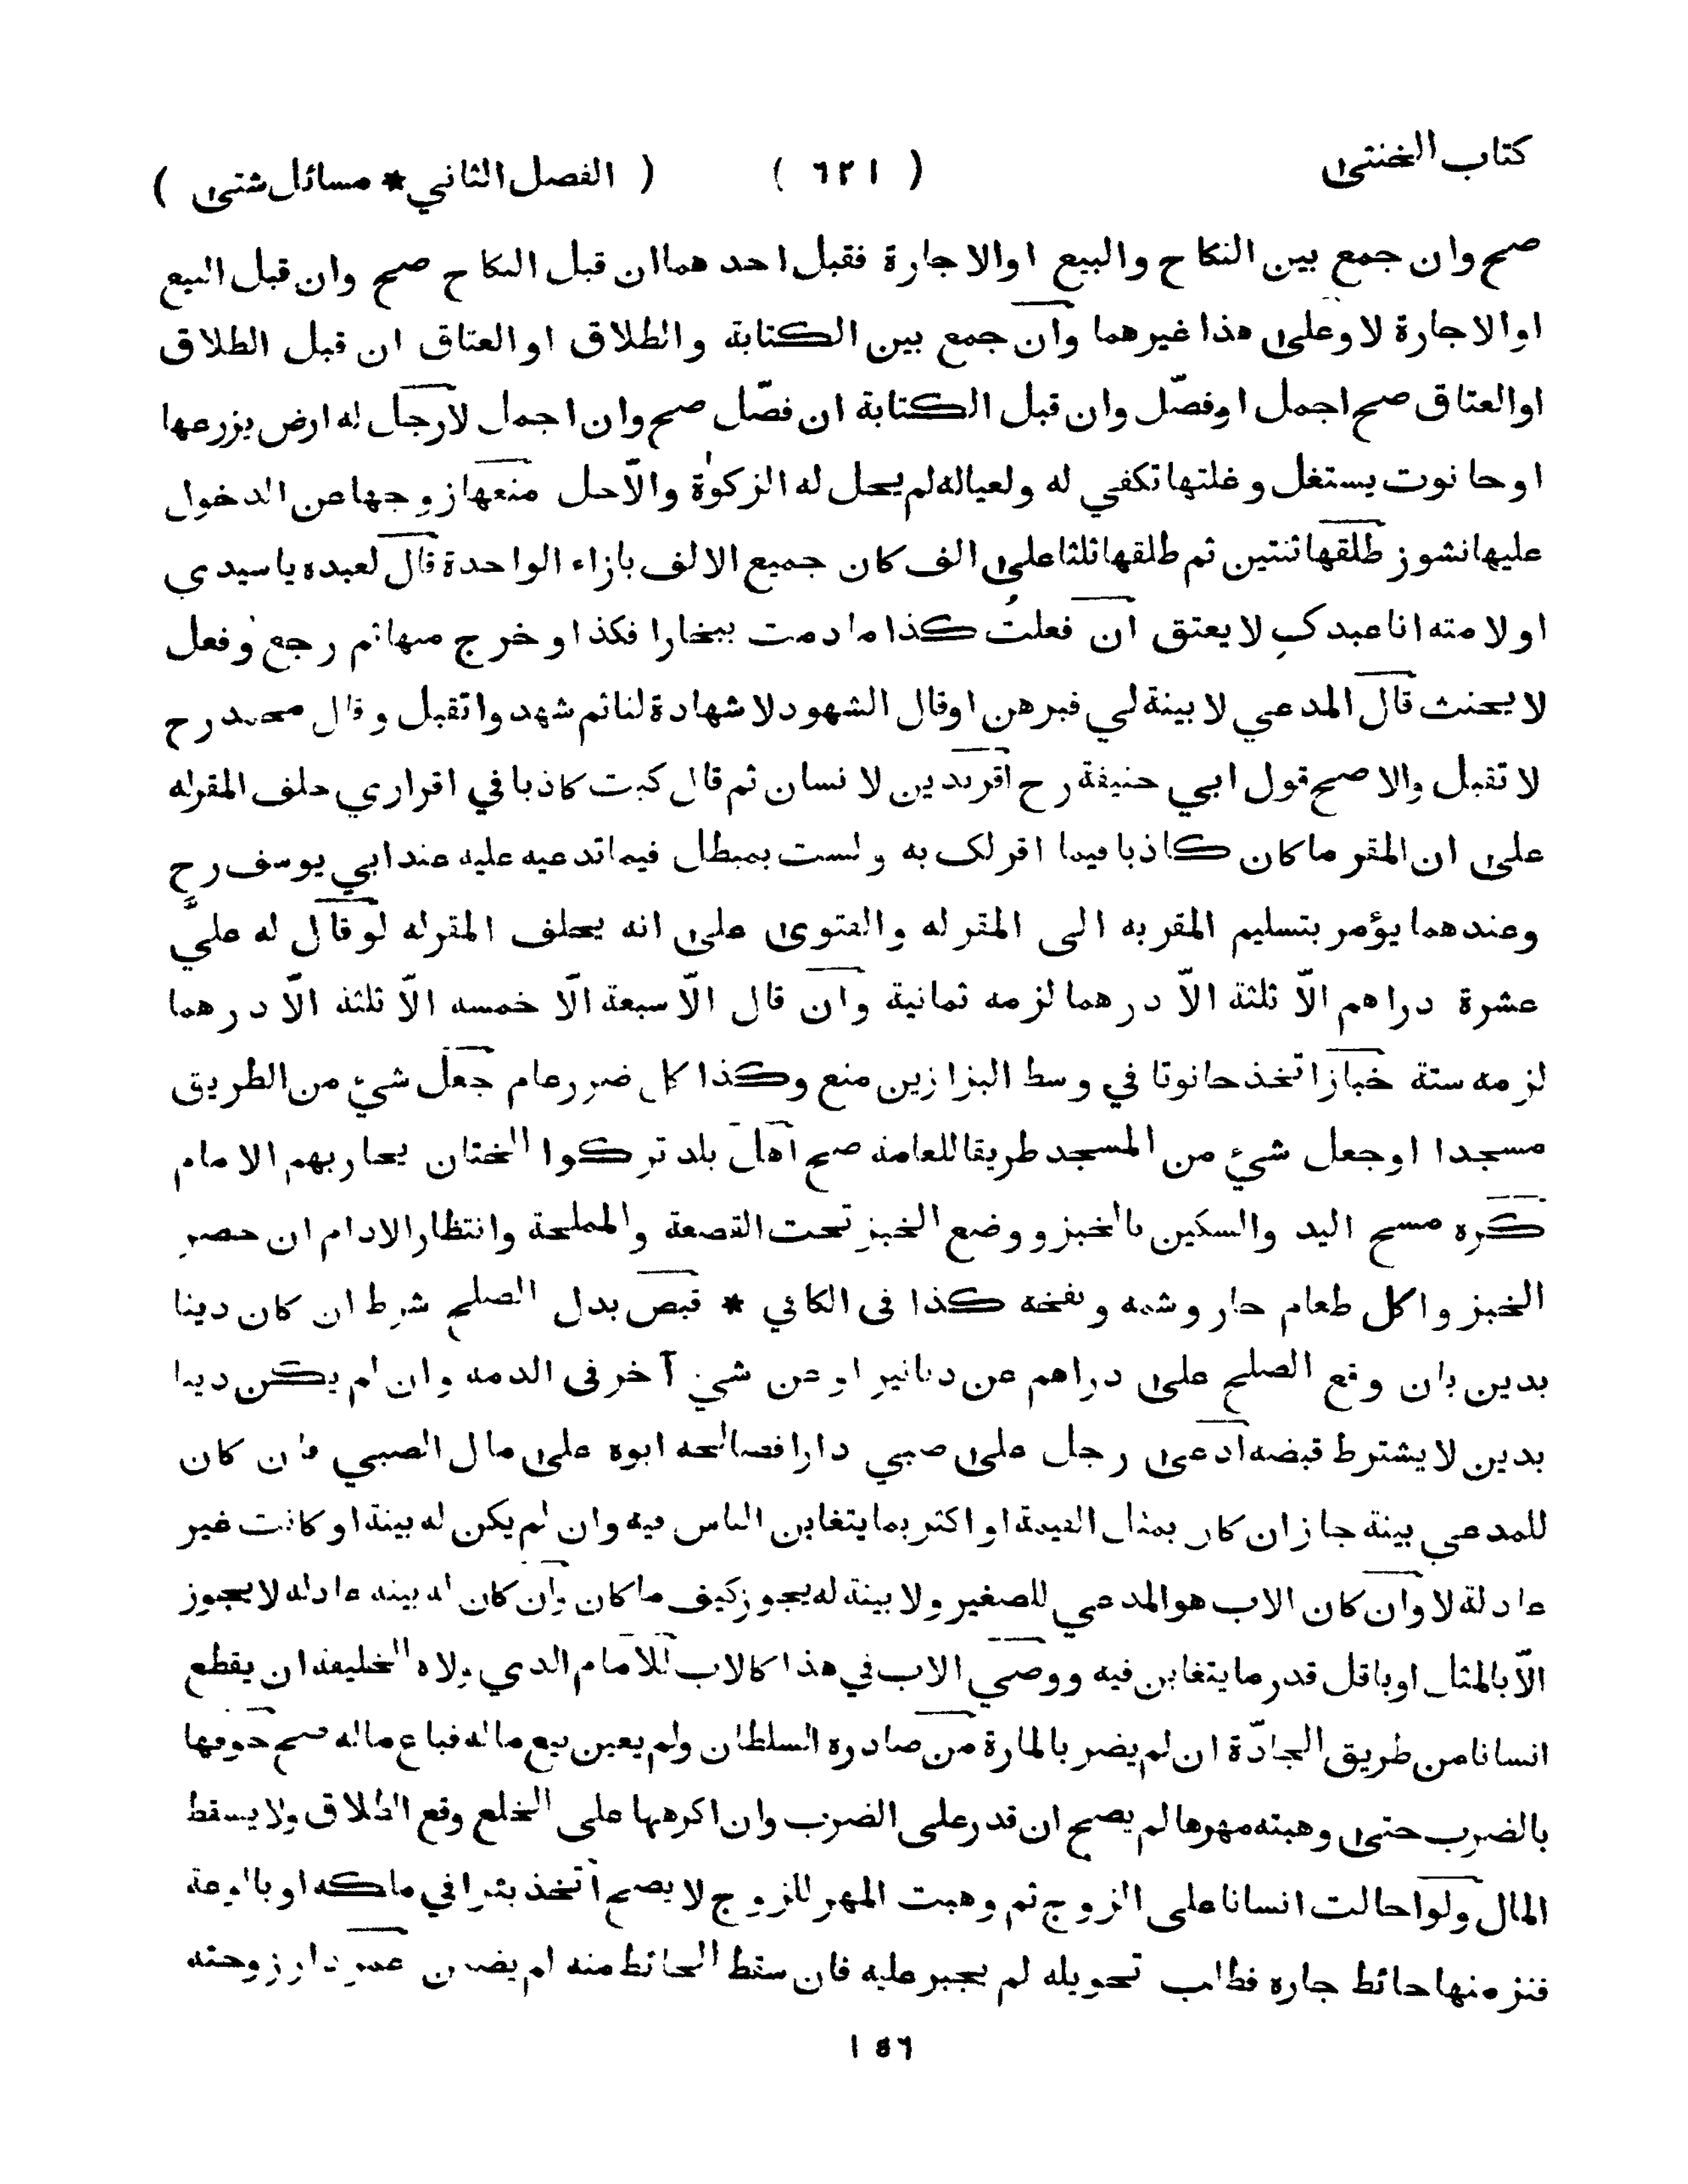 كتاب الخنثى
( ٦٢١ )
( الفصل الثاني * مسائل شتى )
صح وان جمع بين النكاح والبيع او الاجارة فقبل احد هما ان قبل النكاح صح وان قبل البيع
او الاجارة لا وعلى هذا غيرهما وان جمع بين الكتابة والطلاق او العتاق ان قبل الطلاق
او العتاق صح اجمل او فصّل وان قبل الكتابة ان فصّل صح وان اجمل لا رجل له ارض يزرعها
او حانوت يستغل وغلتها تكفي له ولعياله لم يحل له الزكوٰة والّا حل منعها زوجها عن الدخول
عليها نشوز طلقها ثنتين ثم طلقها ثلثا على الف كان جميع الالف بازاء الواحدة قال لعبده يا سيدي
او لامته انا عبدكِ لا يعتق ان فعلتُ كذا ما دمت ببخارا فكذا وخرج منها ثم رجع وفعل
لا يحنث قال المدعي لا بينة لي فبرهن او قال الشهود لا شهادة لنا ثم شهدوا تقبل وقال محمد رح
لا تقبل والاصح قول ابي حنيفة رح اقر بدين لانسان ثم قال كنت كاذبا في اقراري حلف المقر له
على ان المقر ما كان كاذبا فيما اقر لك به ولست بمبطل فيما تدعيه عليه عند ابي يوسف رح
وعندهما يؤمر بتسليم المقر به الى المقر له والفتوى على انه يحلف المقر له لو قال له عليّ
عشرة دراهم الّا ثلثة الّا درهما لزمه ثمانية وان قال الّا سبعة الّا خمسه الّا ثلثة الّا درهما
لزمه ستة خباز اتخذ حانوتا في وسط البزازين منع وكذا كل ضرر عام جعل شيئ من الطريق
مسجدا او جعل شيئ من المسجد طريقا للعامة صح اهل بلد تركوا الختان يحاربهم الامام
كره مسح اليد والسكين بالخبز ووضع الخبز تحت القصعة والمملحة وانتظار الادام ان حضر
الخبز واكل طعام حار وشمه ونفخه كذا فى الكافي * قبض بدل الصلح شرط ان كان دينا
بدين بان وقع الصلح على دراهم عن دنانير او عن شيئ آخر فى الذمة وان لم يكن دينا
بدين لا يشترط قبضه ادعى رجل على صبي دارا فصالحه ابوه على مال الصبي فان كان
للمدعي بينة جاز ان كان بمثل القيمة او اكثر بما يتغابن الناس فيه وان لم يكن له بينة او كانت غير
عادلة لا وان كان الاب هو المدعي للصغير ولا بينة له يجوز كيف ما كان وان كان له بينة عادلة لا يجوز
الّا بالمثل او باقل قدر ما يتغابن فيه ووصي الاب في هذا كالاب للامام الذي ولاه الخليفة ان يقطع
انسانا من طريق الجادّة ان لم يضر بالمارة من صادره السلطان ولم يعين بيع ماله فباع ماله صح خوفها
بالضرب حتى وهبته مهرها لم يصح ان قدر على الضرب وان اكرهها على الخلع وقع الطلاق ولا يسقط
المال ولو احالت انسانا على الزوج ثم وهبت المهر للزوج لا يصح اتخذ بئرا في ملكه او بالوعة
فنز منها حائط جاره فطلب تحويله لم يجبر عليه فان سقط الحائط منه لم يضمن عمر دار زوجته
١٥٦